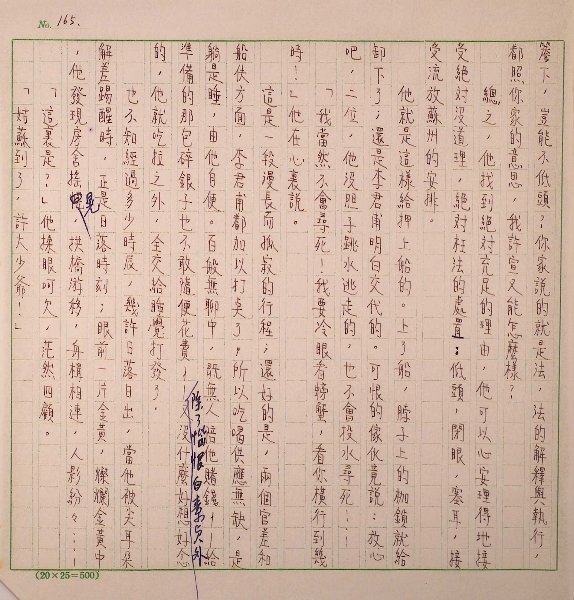 No. 165.
簷下,豈能不低頭?你家說的就是法,法的解釋與執行,
都照你家的意思,我許宣又能怎麼樣?
總之,他找到絕對充足的理由,他可以心安理得地接
受絕對沒道理,絕對枉法的處置:低頭,閉眼,塞耳,接
受流放蘇州的安排。
他就是這樣給押上船的。上了船,脖子上的枷鎖就給
卸下了;還是李君甫明白交代的。可恨的傢伙竟說:放心
吧,二位,他沒膽子跳水逃走的,也不會投水尋死……
「我當然不會尋死!我要冷眼看螃蟹,看你橫行到幾
時!」他在心裏說。
這是一段漫長而孤寂的行程;還好的是,兩個官差和
船伕方面,李君甫都加以打點了,所以吃喝供應無缺,是
躺是睡,由他自便。百般無聊中,既無人陪他賭錢——給
準備的那包碎銀子也不敢隨便花費——又沒什麼好想好念
除了惱恨白素貞外
的,他就吃拉之外,全交給睡覺打發了。
也不知經過多少時辰,幾許日落日出,當他被尖耳朵
解差踢醒時,正是日落時刻;眼前一片金黃,燦爛金黃中
,他發現房舍搖晃,拱橋游移,舟楫相連,人影紛々……
「這裏是?」他揉眼呵欠,茫然四顧。
「姑蘇到了,許大少爺!」
(20×25=500)